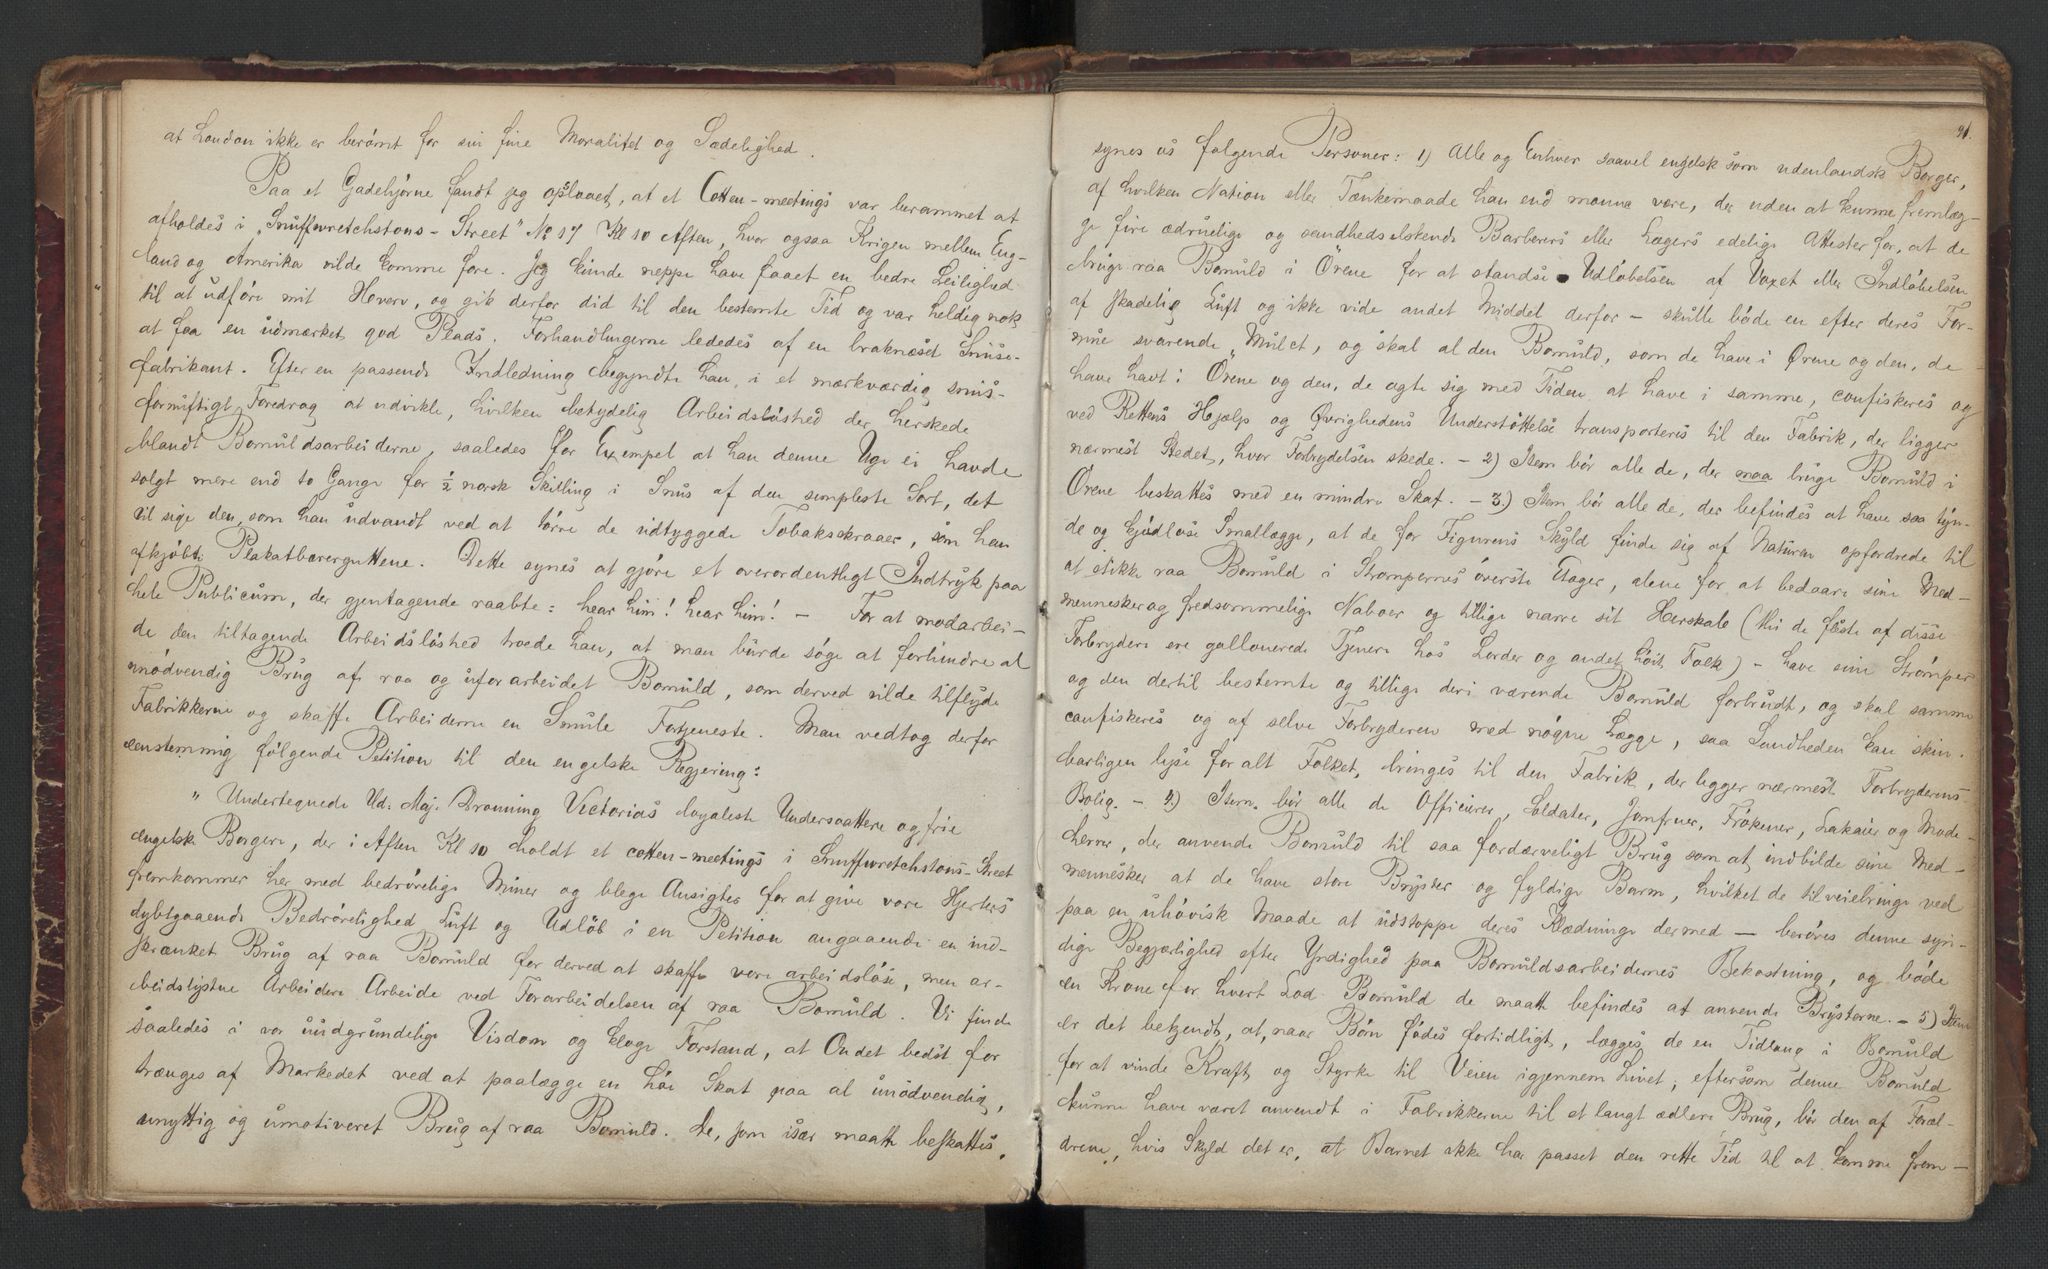 at London ikke er berømt for sin fine Moralitet og Sædelighed.
Paa et Gadehjørne fandt jeg opslaaet, at et Cotten-meetings var berammet at
afholdes i „Snuffwretchstons-Street" No 17 Kl 10 Aften, hvor ogsaa Krigen mellem Eng-
land og Amerika vilde komme fore. Jeg kunde neppe have faaet en bedre Leilighed
til at udføre mit Hverv, og gik derfor did til den bestemte Tid og var heldig nok
at faa en udmærket god Plads. Forhandlingerne lededes af en braknæset Snuse-
fabrikant. Efter en passende Indledning begyndte han, i et mærkværdig snus-
fornuftigt Foredrag at udvikle, hvilken betydelig Arbeidsløshed der herskede
blandt Bomuldsarbeiderne, saaledes for Exempel at han denne Uge ei havde
solgt mere end to Gange for ½ norsk Skilling i Snus af den simpleste Sort, det
vil sige den, som han udvandt ved at tørre de udtyggede Tobaksskraaer, som han
afkjøbte Plakatbærerguttene. Dette synes at gjøre et overordentligt Indtryk paa
hele Publicum, der gjentagende raabte: hear him! hear him! — For at modarbei-
de den tiltagende Arbeidsløshed troede han, at man burde søge at forhindre al
unødvendig Brug af raa og uforarbeidet Bomuld, som derved vilde tilflyde
Fabrikkerne og skaffe Arbeiderne en Smule Fortjeneste. Man vedtog derfor
eenstemmig følgende Petition til den engelske Regjering:
„ Undertegnede Hd. Maj. Dronning Victorias loyaleste Undersaattere og frie
engelske Borgere, der i Aften Kl 10 holdt et cotten-meetings i Snuffwretchstons-Street
fremkommer her med bedrøvelige Miner og blege Ansigter for at give vore Hjerters
dybtgaaende Bedrøvelighed Luft og Udløb i en Petition angaaende en ind-
skrænket Brug af raa Bomuld for derved at skaffe vore arbeidsløse, men ar-
beidslystne Arbeidere Arbeide ved Forarbeidelsen af raa Bomuld. Vi finde
saaledes i vor uudgrundelige Visdom og kloge Forstand, at Ondet bedst for
trænges af Markedet ved at paalægge en høi Skat paa al unødvendig,
unyttig og umotiveret Brug af raa Bomuld. De, som især maatte beskattes,
91.
synes os følgende Personer: 1) Alle og Enhver saavel engelsk som udenlandsk Borger,
af hvilken Nation eller Tænkemaade han end monne være, der uden at kunne fremlæg-
ge fire ædruelige og sandhedselskende Barberers eller Lægers edelige Attester for, at de
bruge raa Bomuld i Ørene for at standse Udløbelsen af Voxet eller Indløbelsen
af skadelig Luft og ikke vide andet Middel derfor — skulle bøde en efter deres For-
mue svarende Mulct, og skal al den Bomuld, som de have i Ørene og den, de
have havt i Ørene og den, de agte sig med Tiden at have i samme, confiskeres og
ved Rettens Hjælp og Øvrighedens Understøttelse transporteres til den Fabrik, der ligger
nærmest Stedet, hvor Forbrydelsen skede. — 2) Item bør alle de, der maa bruge Bomuld i
Ørene beskattes med en mindre Skat. — 3) Item bør alle de, der befindes at have saa tyn-
de og kjødløse Smallægge, at de for Figurens Skyld finde sig af Naturen opfordrede til
at stikke raa Bomuld i Strømpernes øverste Etager, alene for at bedaare sine Med-
mennesker og fredsommelige Naboer og tillige narre sit Herskab (thi de fleste af disse
Forbrydere ere gallonerede Tjenere hos Lorder og andet høit Folk) — have sine Strømper
og den dertil bestemte og tillige deri værende Bomuld forbrudt, og skal samme
confiskeres og af selve Forbryderen med nøgne Lægge, saa Sandheden kan skin-
barligen lyse for alt Folket, bringes til den Fabrik, der ligger nærmest Forbryderens
Bolig. — 4) Item bør alle de Officierer, Soldater, Jomfruer, Frøkener, Lakaier og Mode-
herrer, der anvende Bomuld til saa fordærveligt Brug som at indbilde sine Med-
mennesker at de have store Bryster og fyldige Barm, hvilket de tilveiebringe ved
paa en uhøvisk Maade at udstoppe deres Klædninge dermed — berøves denne syn-
dige Begjærlighed efter Yndighed paa Bomuldsarbeidernes Bekostning, og bøde
en Krone for hvert Lod Bomuld de maatte befindes at anvende Brysterne. — 5) Item
er det bekjendt, at, naar Børn fødes fortidligt, lægges de en Tidlang i Bomuld
for at vinde Kraft og Styrke til Veien igjennem Livet; eftersom denne Bomuld
kunne have været anvendt i Fabrikkerne til et langt ædlere Brug, bør den af Foræl-
drene, hvis Skyld det er, at Barnet ikke har passet den rette Tid til at komme frem—